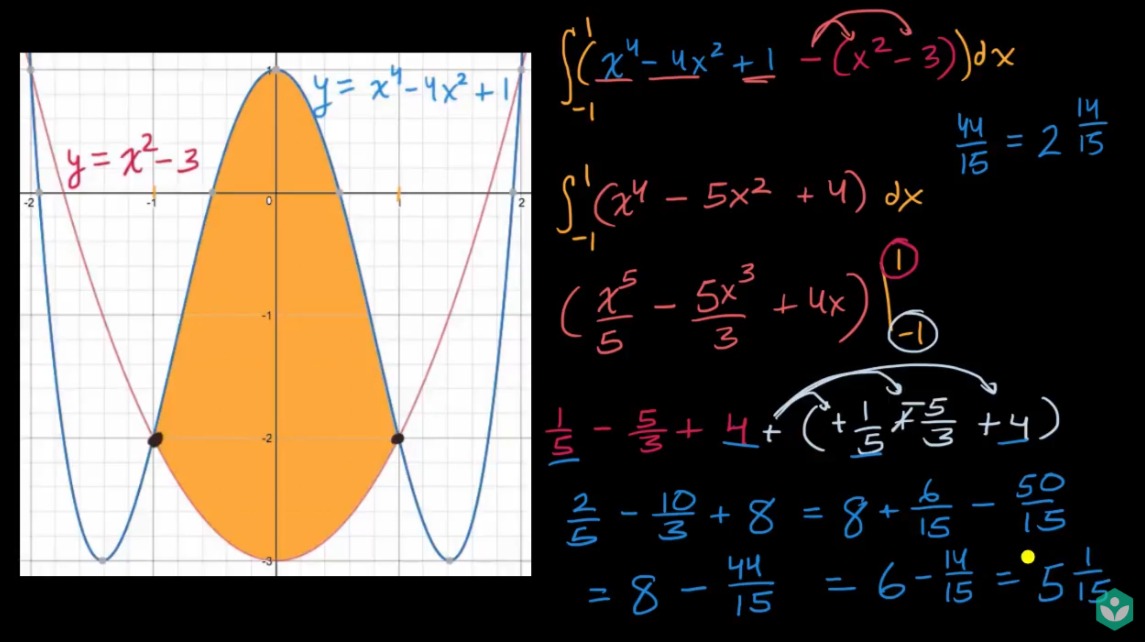 y = x² - 3
y = x⁴ - 4x² + 1
1
-2 -1 0 1 2
-1
-2
-3
∫₋₁¹ (x⁴ - 4x² + 1 - (x² - 3)) dx
44/15 = 2 14/15
∫₋₁¹ (x⁴ - 5x² + 4) dx
(x⁵/5 - 5x³/3 + 4x) |₋₁¹
1/5 - 5/3 + 4 + (+1/5 - 5/3 + 4)
2/5 - 10/3 + 8 = 8 + 6/15 - 50/15
= 8 - 44/15 = 6 - 14/15 = 5 1/15